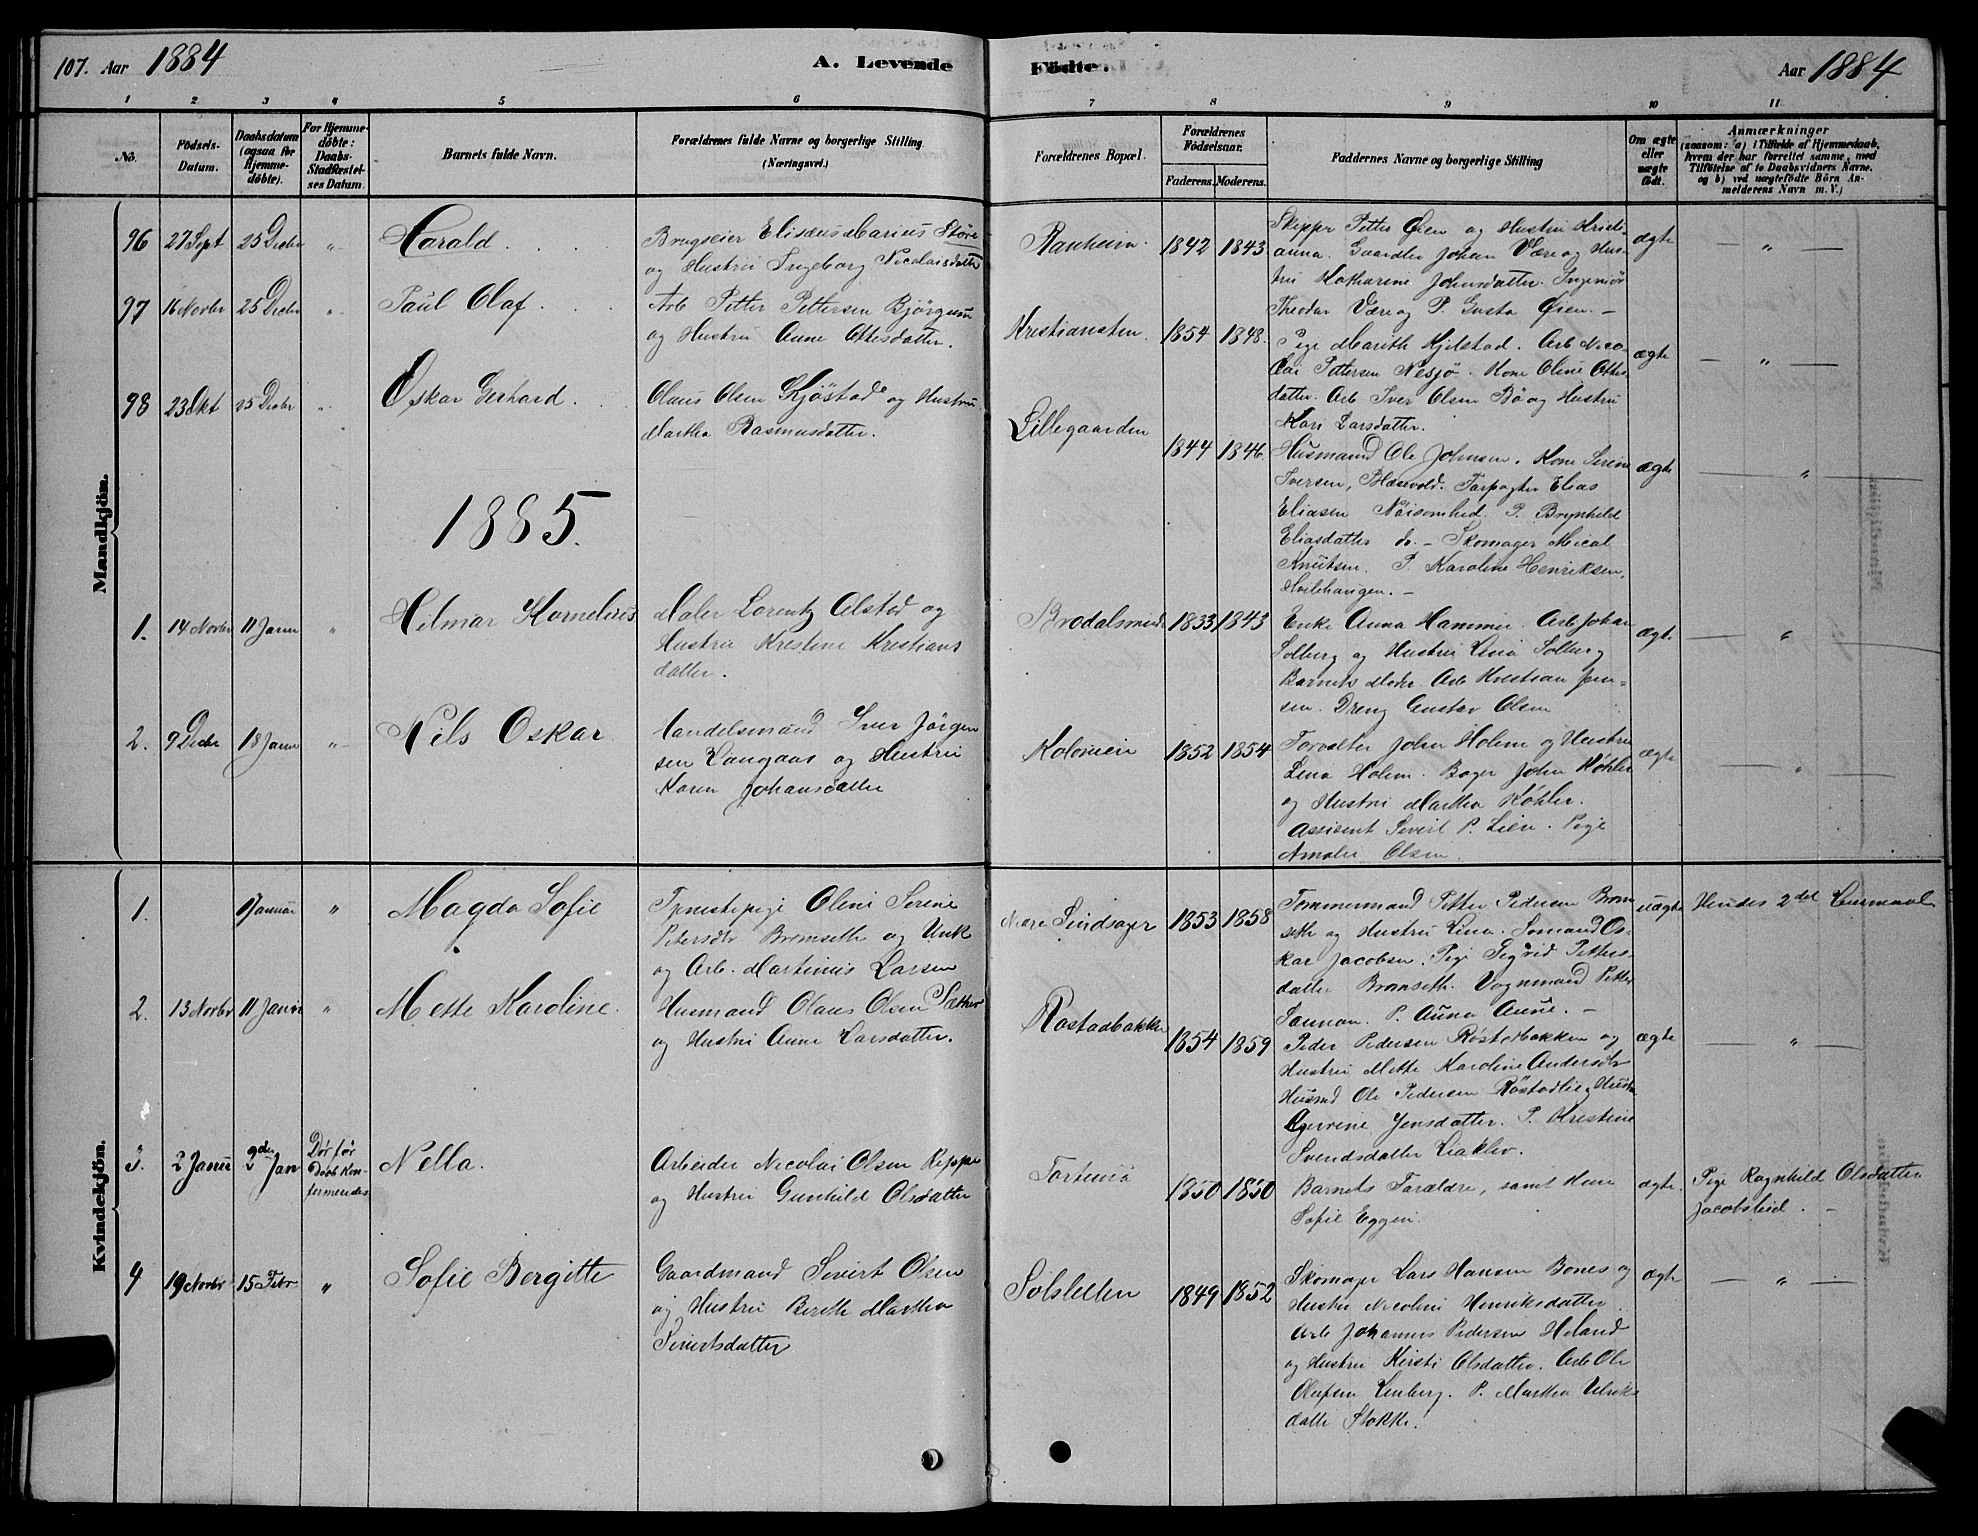 107. Aar 1884
A. Levende
Fødte.
Aar 1884
1 2 3 4 5 6 7 8 9 10 11
No.
Födsels-
Datum.
Daabsdatum
(ogsaa for
Hjemme-
døbte).
For Hjemme-
døbte:
Daabs-
Stadfæstel-
ses Datum.
Barnets fulde Navn.
Forældrenes fulde Navne og borgerlige Stilling.
(Næringsvei.)
Forældrenes Bopæl.
Forældrenes
Födselsaar.
Faderens. Moderens.
Faddernes Navne og borgerlige Stilling
Om ægte
eller
uægte
födt.
Anmærkninger
(saasom: a) i Tilfælde af Hjemmedaab,
hvem der har forrettet samme, med
Tilföielse af to Daabsvidners Navne,
og b) ved uægtefödte Börn An-
melderens Navn m. V.)
Mandkjön.
96 27 Sept 25 Decbr " Harald.
Brugseier Elisæus Marius Støre
og Hustru Ingeborg Nicolaisdatter
Ranheim. 1842 1843.
Skipper Petter Øien og Hustru Kristi-
anna. Gaardbr Johan Være og Hus-
tru Katharine Johnsdatter. Ingeniør
Theodor Være og P. Gusta Øien. –
ægte — " —
97 16 Novbr 25 Decbr " Paul Olaf.
Arb Petter Pettersen Bjørgum
og Hustru Anne Ottesdatter.
Kristiansten. 1854 1848.
Pige Marith Hjelstad. Arb Nico-
lai Pettersen Nesjø. Kone Oline Ottes-
datter. Arb Iver Olsen Bø og Hustru
Kari Larsdatter.
ægte — " —
98 23 Okt 25 Decbr " Oskar Gerhard.
Olaus Olsen Gjøstad og Hustru
Martha Rasmusdatter.
Lillegaarden 1844 1846.
Husmand Ole Johnsen. Kone Serine
Iversen, Blæsevold. Forpagter Elias
Eliasen Nöisomhed. P. Brynhild
Eliasdatter do. – Skomager Mical
Knutsen. P Karoline Henriksen,
Hvilehaugen. –
ægte — " —
1885.
1. 14 Novbr 11 Janu " Hilmar Kornelius
Maler Lorentz Alstad og
Hustru Kristine Kristians
datter.
1833 1843
Enke Anna Hammer. Arb Johan
Solberg og Hustru Lina Solberg
Barnets Moder. Arb Kristian Jen-
sen. Dreng Gustav Olsen
ægte — " —
2. 9 Decbr 18 Janu " Nils Oskar
Handelsmand Iver Jörgen
sen Vangaas og Hustru
Karen Johansdatter
Kolomeien 1852 1854
Forvalter John Holem og Hustru
Lena Holem. Bager John Köhler
og Hustru Martha Köhler.
Assisent Sivert P. Lien. Pige
Amalie Olsen.
ægte — " —
Kvindekjön.
1. Januar " Magda Sofie
Tjenestepige Oline Serine
Petersdtr Bromseth og Unk
og Arb. Martinus Larsen
Nedre Lindsager 1853 1858
Tømmermand Petter Pedersen Brom
seth og Hustru Lina. Sømand Os-
kar Jacobsen. Pige Sigrid Petters-
datter Bromseth. Vognmand Petter
P. Anna Aune. –
uægte Hendes 2det Leiermaal
2. 13 Novbr 11 Janu " Mette Karoline.
Husmand Olaus Olsen Sæther
og Hustru Anne Larsdatter.
Røstadbakken 1854 1859
Peder Pedersen Røstadbakken og
Hustru Mette Karoline Andersdtr
Husmd Ole Pedersen Röstadlie og Hustru
Jensdatter. P. Kristine
Svendsdatter Liaklev.
ægte — " —
3. 2 Janu Jan
Dør før
Daab Kon-
fermeredes
Nella.
Arbeider Nicolai Olsen Reppe
og Hustru Gunhild Olsdatter
1850 1850
Barnets Forældre, samt Kone
Sofie Eggen.
ægte.
Pige Ragnhild Olsdatter
Jacobslied. –
4 19 Novbr 15 Febr " Sofie Bergitte
Gaardmand Sivert Olsen
og Hustru Bereth Martha
Sivertsdatter
Solsletten 1849 1852
Skomager Lars Hansen Bones og
Hustru Nicoline Henriksdatter.
Arb Johannes Pedersen Heland
og Hustru Kirsti Olsdatter. Arb Ole
Olufsen Lenberg. P. Martha Ulriks
datter Stokke.
ægte — " —